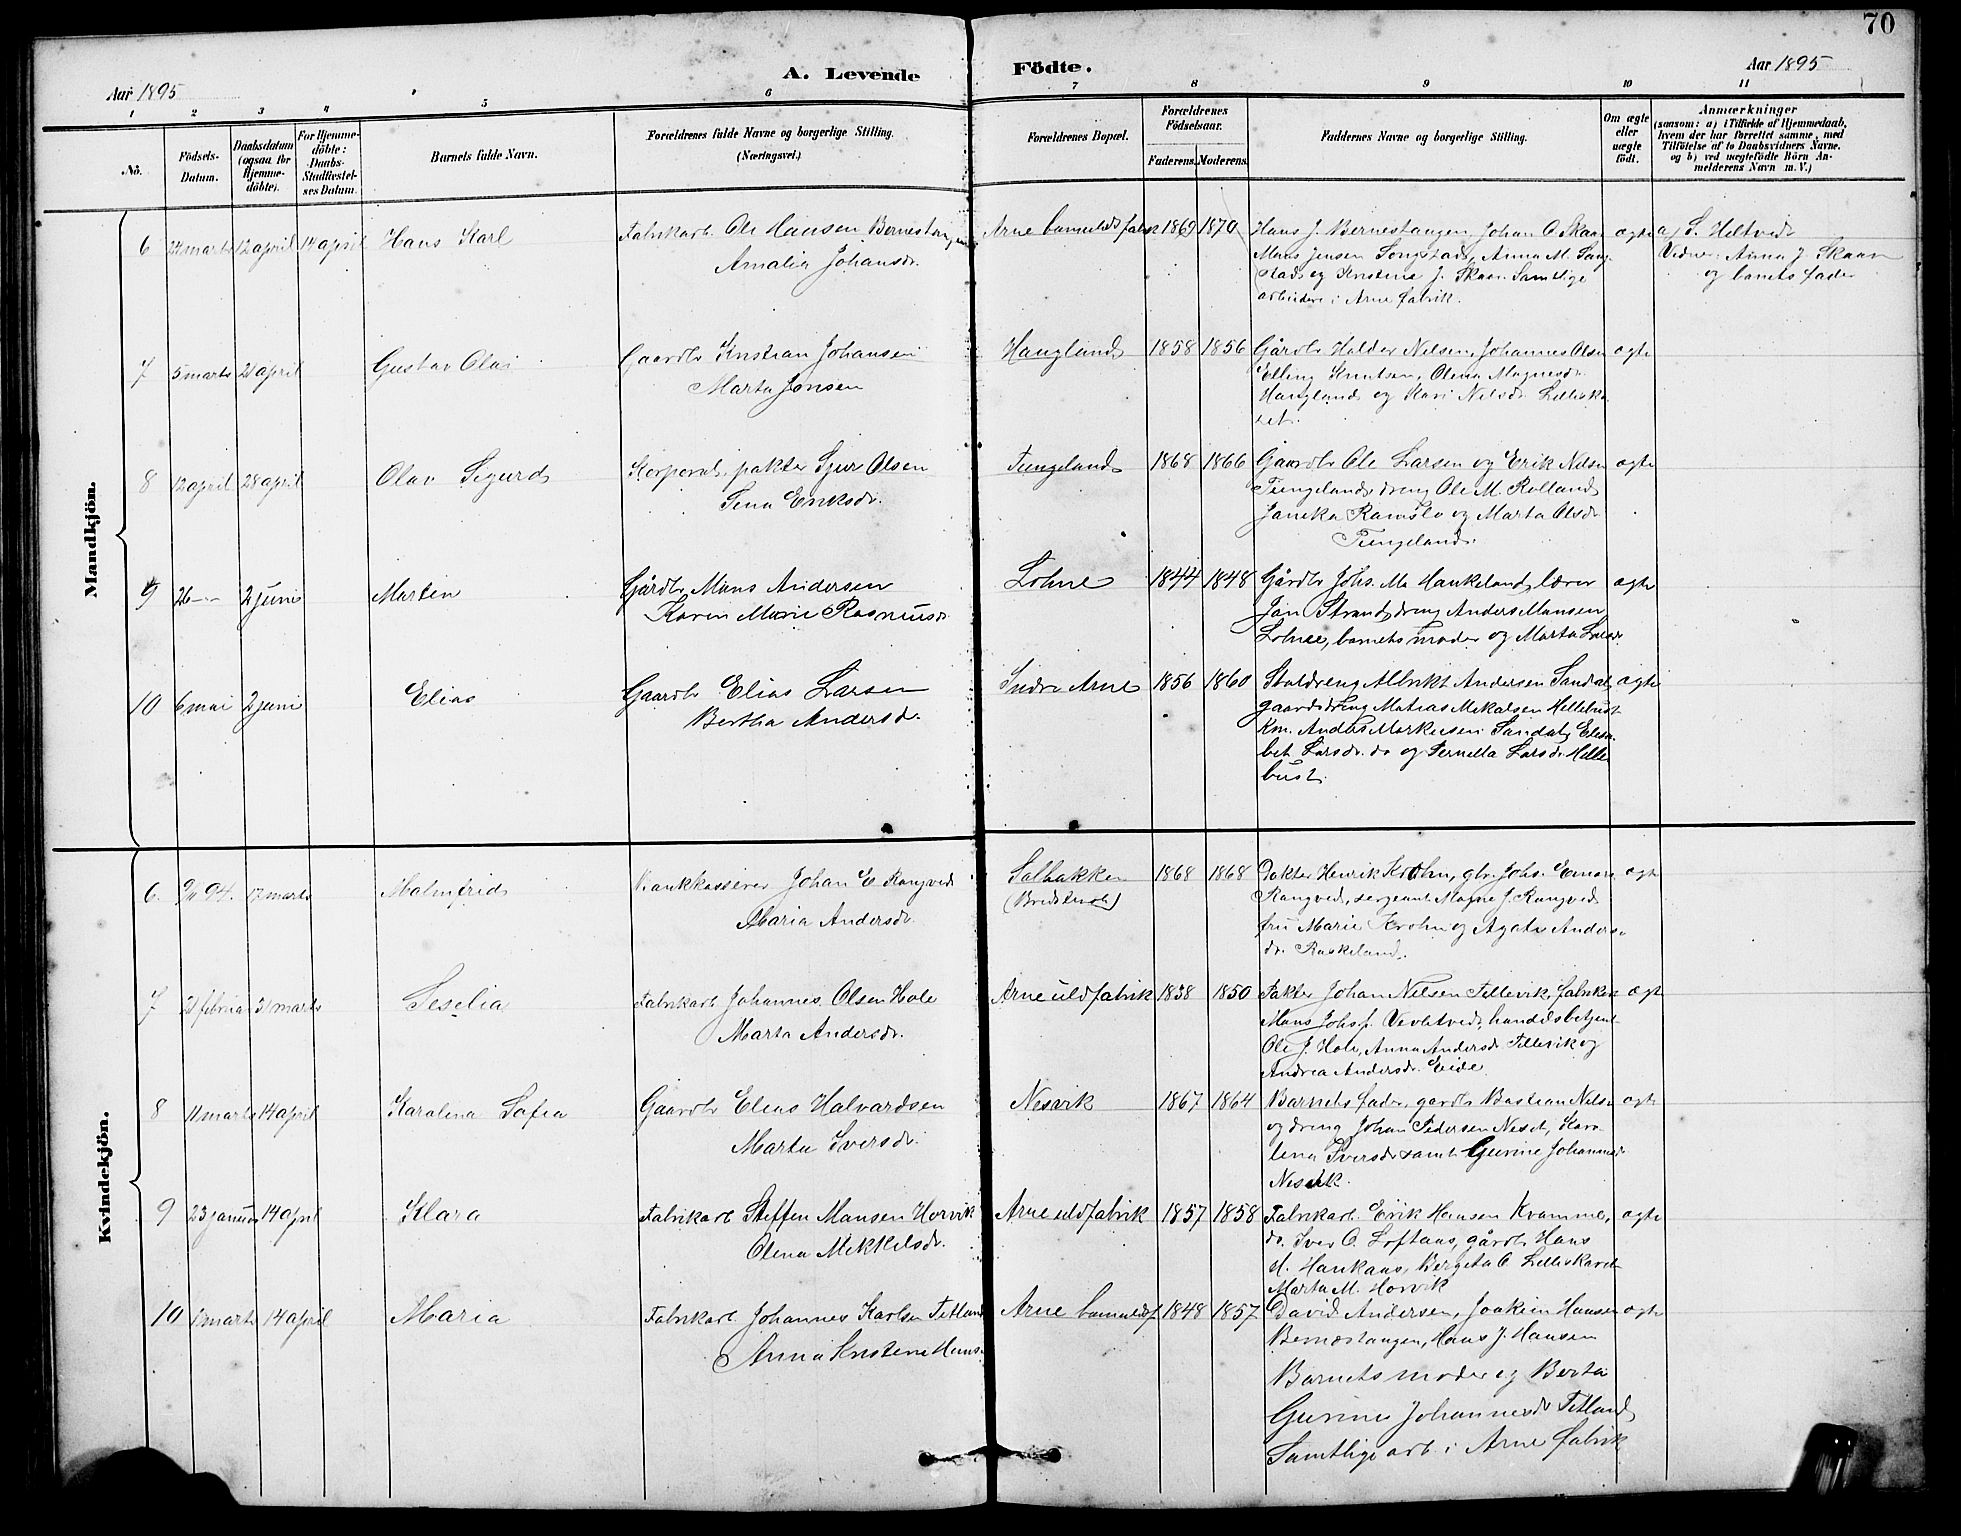 70
A. Levende Födte.
Aar 1895
Aar 1895
1 2 3 4 5 6 7 8 9 10 11
Nö.
Födsels-Datum.
Daabsdatum (ogsaa for Hjemme-döbte).
For Hjemme-döbte: Daabs-Stadfæstelses Datum.
Barnets fulde Navn.
Forældrenes fulde Navne og borgerlige Stilling.
(Næringsvei.)
Forældrenes Bopæl.
Forældrenes Födselsaar.
Faderens. Moderens.
Faddernes Navne og borgerlige Stilling.
Om ægte eller uægte födt.
Anmærkninger
(saasom: a) i Tilfælde af Hjemmedaab,
hvem der har forrettet samme, med
Tilföielse af to Daabsvidners Navne.
og b) ved uægtefödte Börn An-
melderens Navn m. V.)
Mandkjön.
6 24 marts 12 april 14 april Hans Karl
Fabrikarb. Ole Hansen Bernestangen
Amalia Johansdr.
Arne bomuldsfabrik 1869 1870
Hans J. Bernestangen, Johan O. Skaar
Mons Jensen Songstad, Anna M. Song-
stad og Kristine J. Skaar. Samtlige
arbeidere i Arne fabrik.
ægte
a) S. Heltvedt
Vidner: Anna J. Skaar
og barnets fader
7 5 marts 21 april Gustav Olai
Gaardbr Kristian Johansen
Marta Jonsen
Haugland 1858 1856
Gårdbr Haldor Nelsen, Johannes Olsen
Elling Knutsen, Olena Magnesdr.
Haugland og Kari Nilsdr. Lilleska-
ret.
ægte
8 12 april 28 april Olav Sigurd
Korporal, pakter Sjur Olsen
Sena Eriksdr.
Tungeland 1868 1866
Gaardbr Ole Larsen og Erik Nelsen
Tungeland, dreng Ole M. Rolland
Janeka Ramslo og Marta Olsdr.
Tungeland.
ægte
9 26 — 2 juni Martin
Gårdbr Mons Andersen
Karen Marie Rasmusdr.
Lohne 1844 1848
Gårdbr Johs. M. Haukeland, lærer
Jan Strand, dreng Anders Monsen
Lohne, barnets moder og Marta
ægte
10 6 mai 2 juni Elias
Gaardbr Elias Larsen
Bertha Andersdr.
Indre Arne 1856 1860
Staldreng Albrikt Andersen Sandal,
gaardsdreng Matias Mekalsen Hellebust
Km. Anders Markusen Sandal, Elesa-
bet Larsdr. do og Pernella Larsdr. Helle
bust.
ægte
Kvindekjön.
6. 94. 17 marts Malmfrid
Bankkasserer Johan E. Rangved
Maria Andersdr.
Solbakken 1868 1868
(Bredstuen)
Dokter Henrik Krohn, gbr. Johs. Einars.
Rangved, sergeant Magne J. Rangved
fru Marie Krohn og Agate Anders-
dr. Raskeland.
ægte
7 21 februar 31 marts Seselia
Fabrikarb. Johannes Olsen Hole
Marta Andersdr.
Arne uldfabrik 1838 1850
Fakter Johan Nelsen Tellevik, fabrikarb
Mons Johs. Vevletved, handelsbetjent
Ole J. Hole, Anna Andersdr. Tellevik og
Andrea Andersdr. Eide.
ægte
8 11 marts 14 april Karolena Sofia
Gaardbr Elias Halvardsen
Marta Iversdr.
Nesvik 1867 1864
Barnets fader, gardbr Bastian Nelsen
og dreng Johan Pedersen Neset, Karo-
lena Iversdr samt Gurine Johannesdr.
Nesvik.
ægte
9 23 januar 14 april Klara
Fabrikarb Steffen Monsen Horvik
Olena Mekkelsdr.
Arne uldfabrik 1857 1858
Fabrikarb. Erik Hansen Kvamme,
do. Iver O. Loftaas, gårdbr Hans
M. Haukaas, Bergeta O. Lilleskaret
Marta M. Horvik
ægte
10 1 marts 14 april Maria
Fabrikarb Johannes Karlsen Tetland
Anna Kristine Hans.
Arne bomuldsf. 1848 1857
David Andersen, Joakim Hansen
Bernestangen, Hans J. Hansen
Barnets moder og Berta
Gurine Johannesdr Tetland,
Samtlige arb. i Arne fabrik
ægte